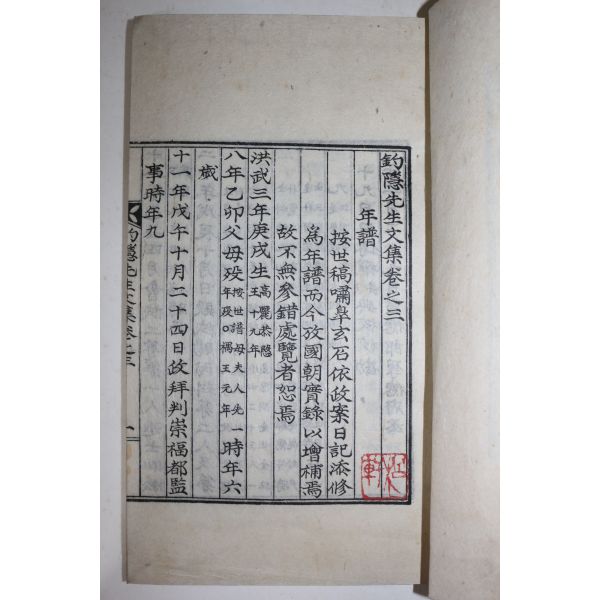 釣隱先生文集卷之三
年譜
按世稿嘯皐玄石依政案日記添修
爲年譜而今攷國朝實錄以增補焉
故不無參錯處覽者恕焉
洪武三年庚戌生高麗恭愍王十九年
八年乙卯父母歿按世譜母夫人先一年歿○禑王元年時年六
歲
十一年戊午十月二十四日政拜判崇福都監
事時年九
釣隱先生文集卷之三
一
軒